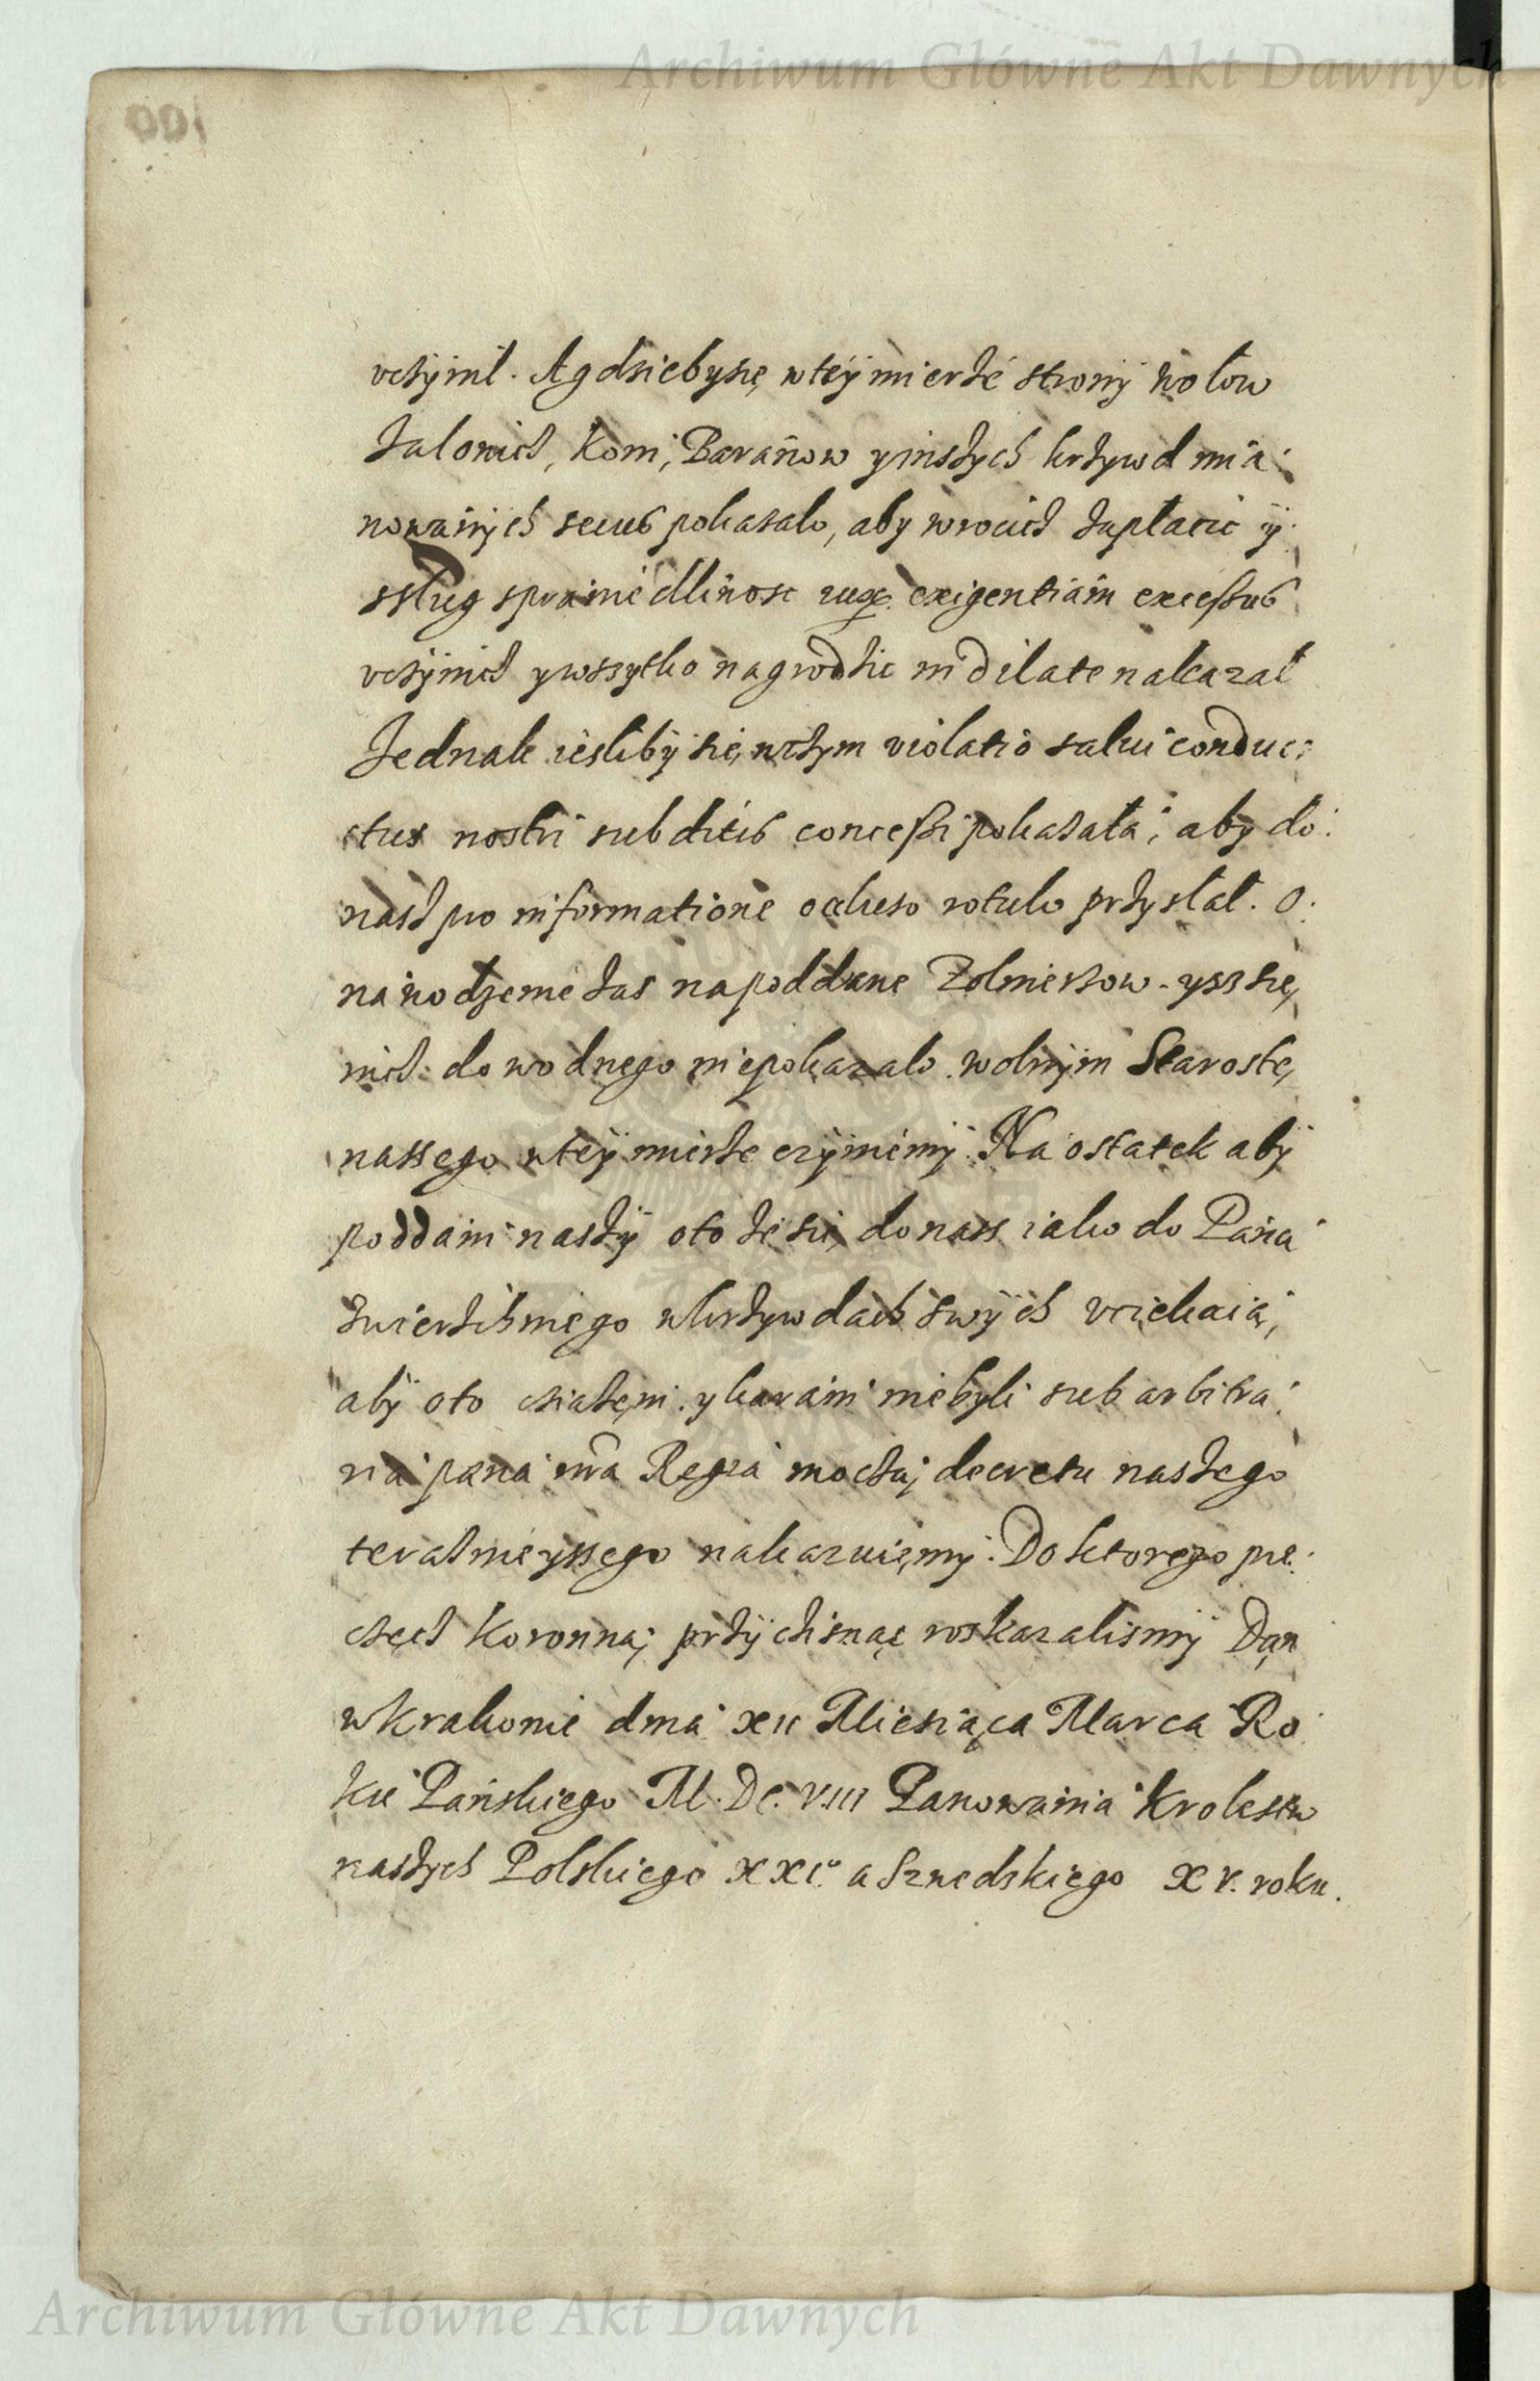 Archiwum Główne Akt Dawnych
001
vcżynil. A gdzieby się wtey mierże strony wołow
Jalowicz, Koni, Baranow y inszych krzywd mia:
nowanych secus pokazalo, aby wrocicz zaplacic y
sprawiedliwosc exigentiam excessus
vczynicz y wszytko nagrodzic in dilate nakazal
Jednak iesliby sie, wczym violatio salui conduc:
ctus nostri subditis concessi pokazała, aby do:
nasz pro informatione ocluso rotulo przysłał. O:
nawodzenie zas na poddane Zolnierzow yzz sie,
nicz dowodnego niepokazalo wolnym Staroste,
nassego wtey mierze czynimy. Na ostatek aby
poddani naszy oto że sie, do nass iako do Pana
zwierzchniego wkrzywdach swych vciekaią,
aby oto ciążęni y karani niebyli sub arbitra:
na pœna mocżą decretu naszego
teraznieyssego nakazuięmy. Do ktorego pie:
cżęcz Koronną przycisnąć roskazalismy Dan
w Krakowie dnia XII Miesiąca Marca Ro
ku Pańskiego M. DC. VIII Panowania Krolestw
naszych Polskiego XXI. a Szwedskiego XV. roku.
Archiwum Główne Akt Dawnych